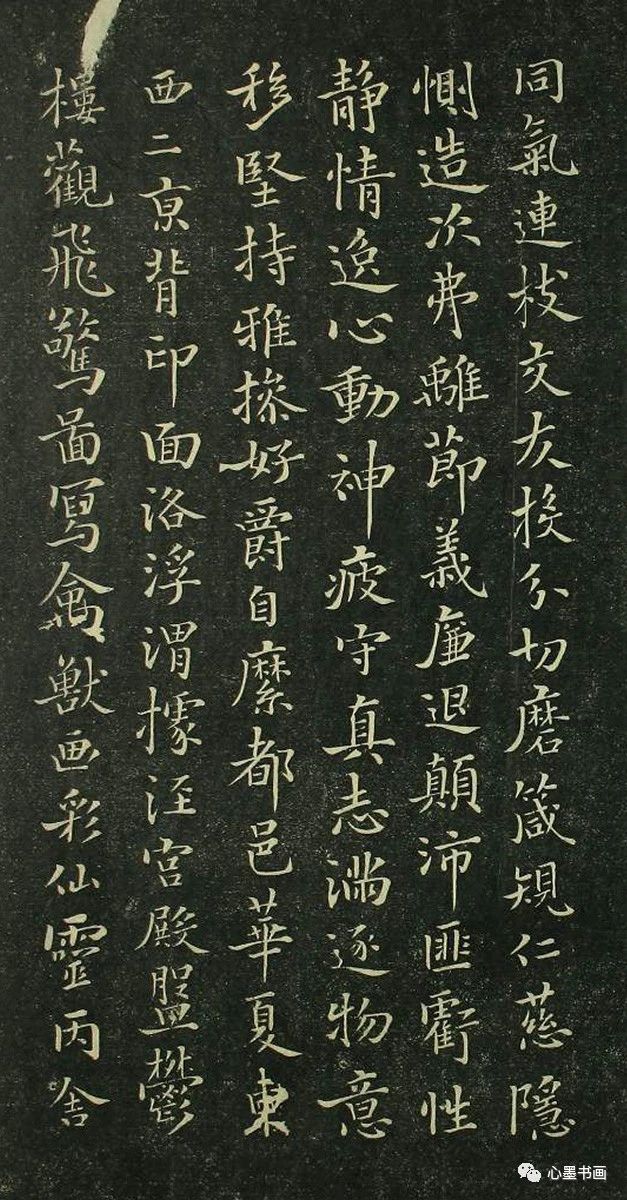 同氣連枝交友投分切磨箴規仁慈隱
惻造次弗離節義廉退顛沛匪虧性
静情逸心動神疲守真志滿逐物意
移堅持雅操好爵自縻都邑華夏東
西二京背邙面洛浮渭據涇宮殿盤鬱
樓觀飛驚啚寫禽獸画彩仙靈丙舍
心墨书画